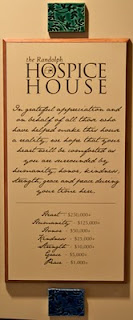 the Randolph
HOSPICE
HOUSE
In grateful appreciation and
on behalf of all those who
have helped make this house
a reality, we hope that your
heart will be comforted as
you are surrounded by
humanity, honor, kindness,
strength, grace and peace during
your time here.
Heart - $250,000+
Humanity - $125,000+
Honor - $50,000+
Kindness - $25,000+
Strength - $10,000+
Grace - $5,000+
Peace - $1,000+